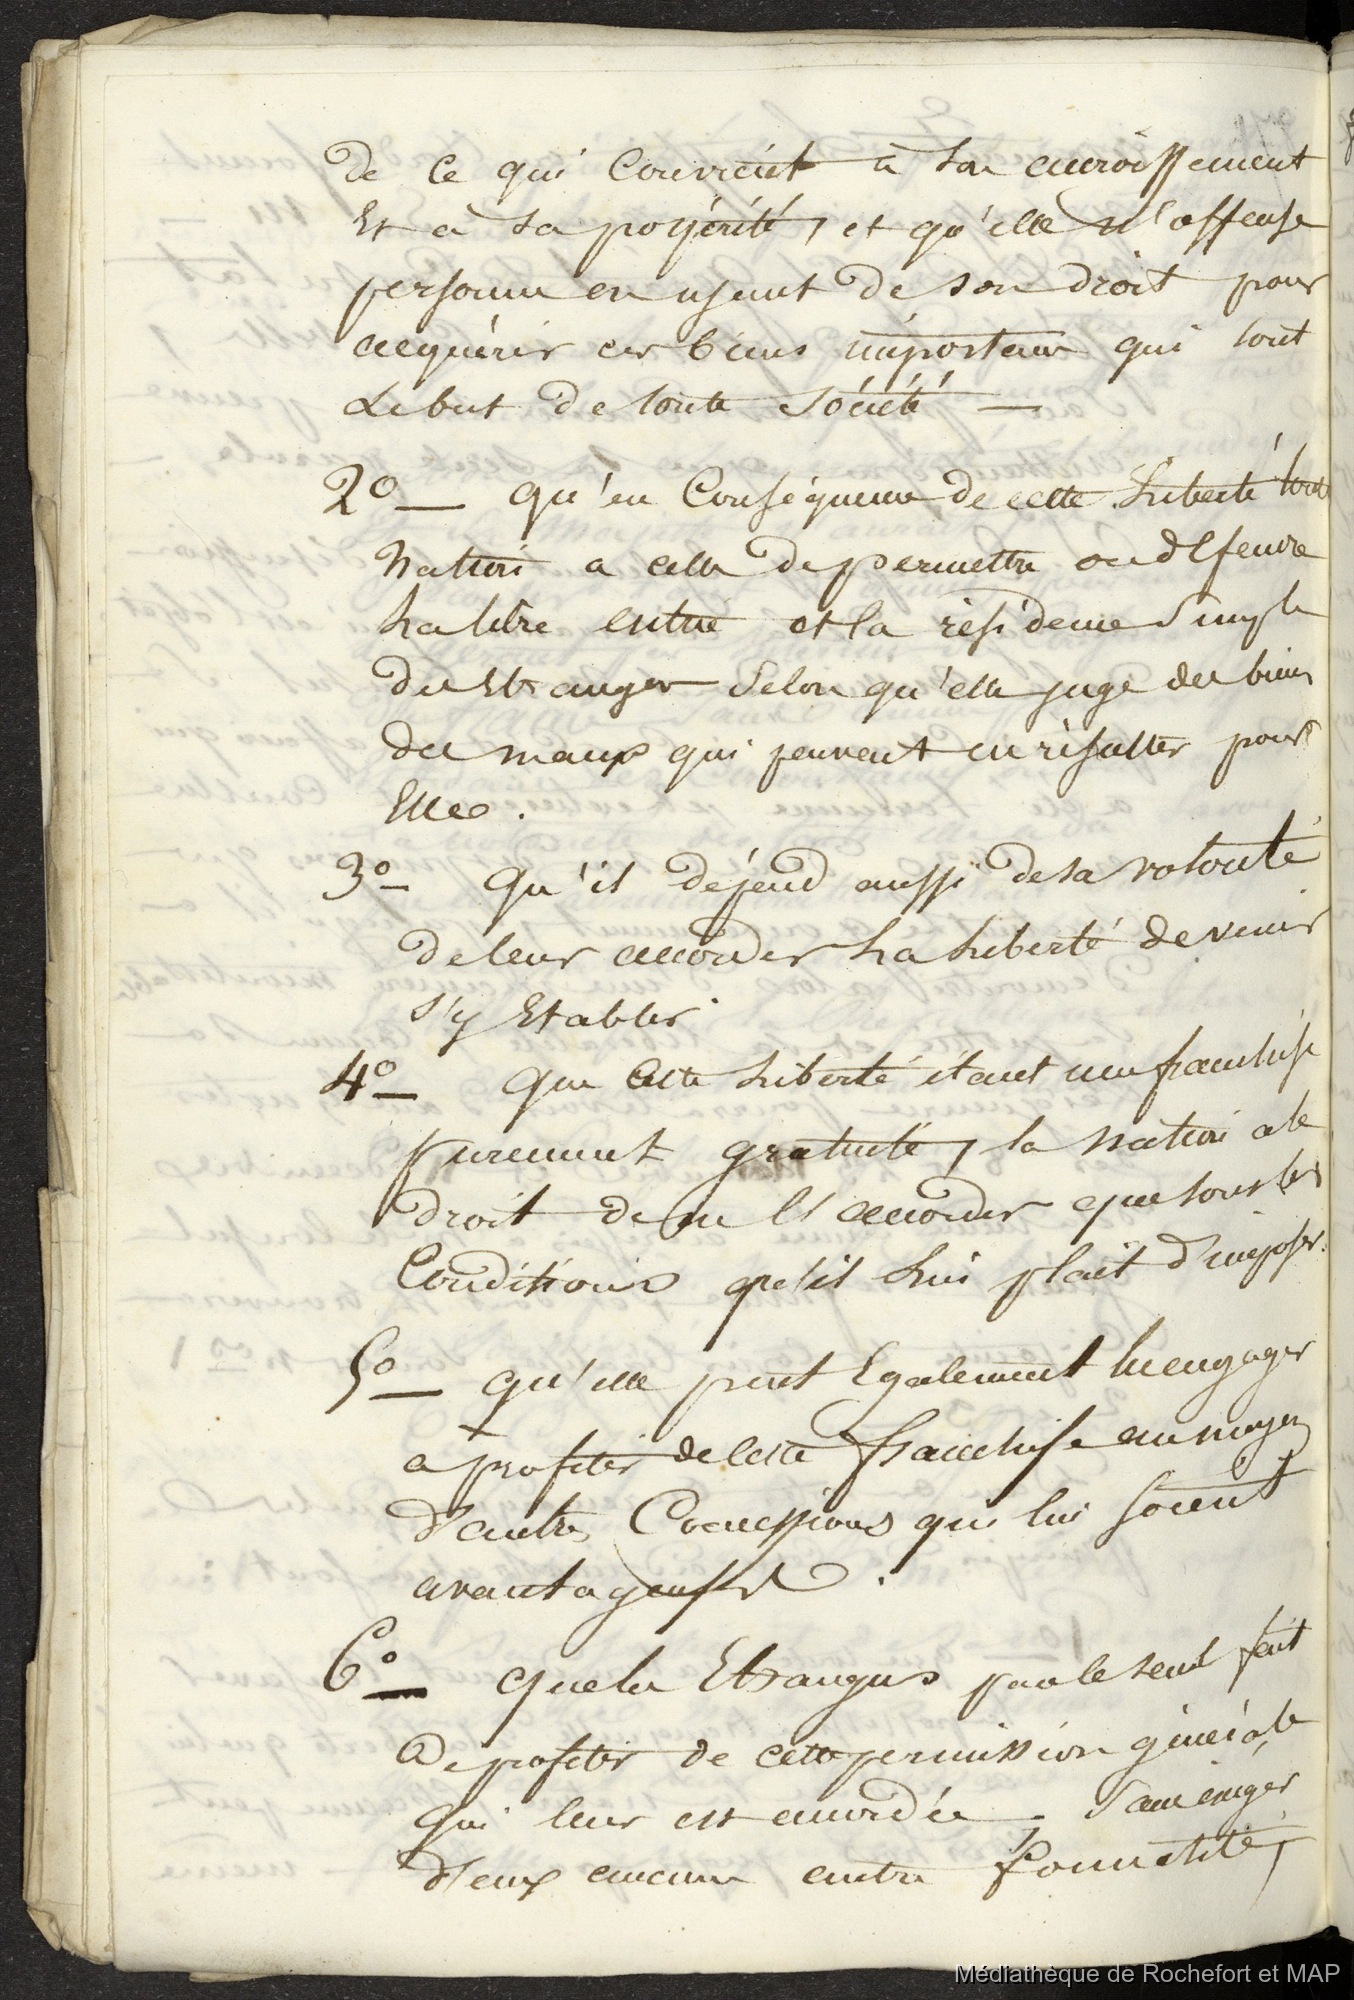 de ce qui convient à son accroissement
Et a sa posterité, et qu'elle n'offense
personne en usant de son droit pour
acquérir ces biens importans qui sont
Le but de toute société —
2° — qu'en Conséquence de cette Liberté toute
Nation a celle de permettre ou deffendre
La libre entrée et la résidence Simple
des Etrangers Selon qu'elle juge des biens
des maux qui peuvent en résulter pour
Elle.
3° — Qu'il dépend aussi de sa volonté
de leur accorder La Liberté de venir
s'y Etablir.
4° — que cette Liberté étant une franchise
purement gratuite, la nation a le
droit de ne l'accorder que sous les
Conditions qu'il Lui plait d'imposer.
5° — qu'elle peut Egalement les engager
a profiter de cette franchise au moyen
d'autres Concessions qui lui soient
avantageuses.
6° — que les Etrangers par le seul fait
de profiter de cette permission générale
qui leur est accordée, sans exiger
d'eux aucune autre formalité,
Médiathèque de Rochefort et MAP